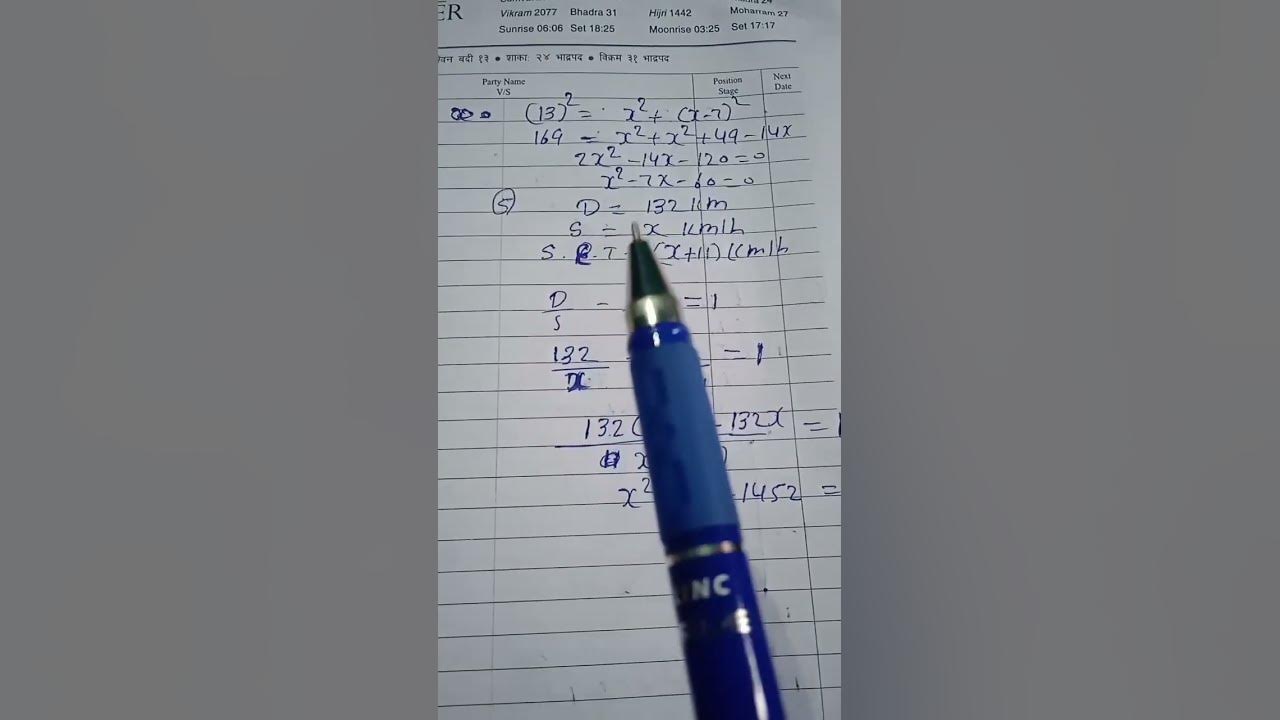 ER
Vikram 2077 Bhadra 31 Hijri 1442 Moharram 27
Sunrise 06:06 Set 18:25 Moonrise 03:25 Set 17:17
बदी १३ • शाकाः २४ भाद्रपद • विक्रम ३१ भाद्रपद
Party Name V/S Position Stage Next Date
(13)² = x² + (x-7)²
169 = x² + x² + 49 - 14x
2x² - 14x - 120 = 0
x² - 7x - 60 = 0
⑤ D = 132 Km
S = x Km/h
S. T (x+11) Km/h
D/S - = 1
132/x = 1
132( - 132x = 1
x
x² 1452 =
INC